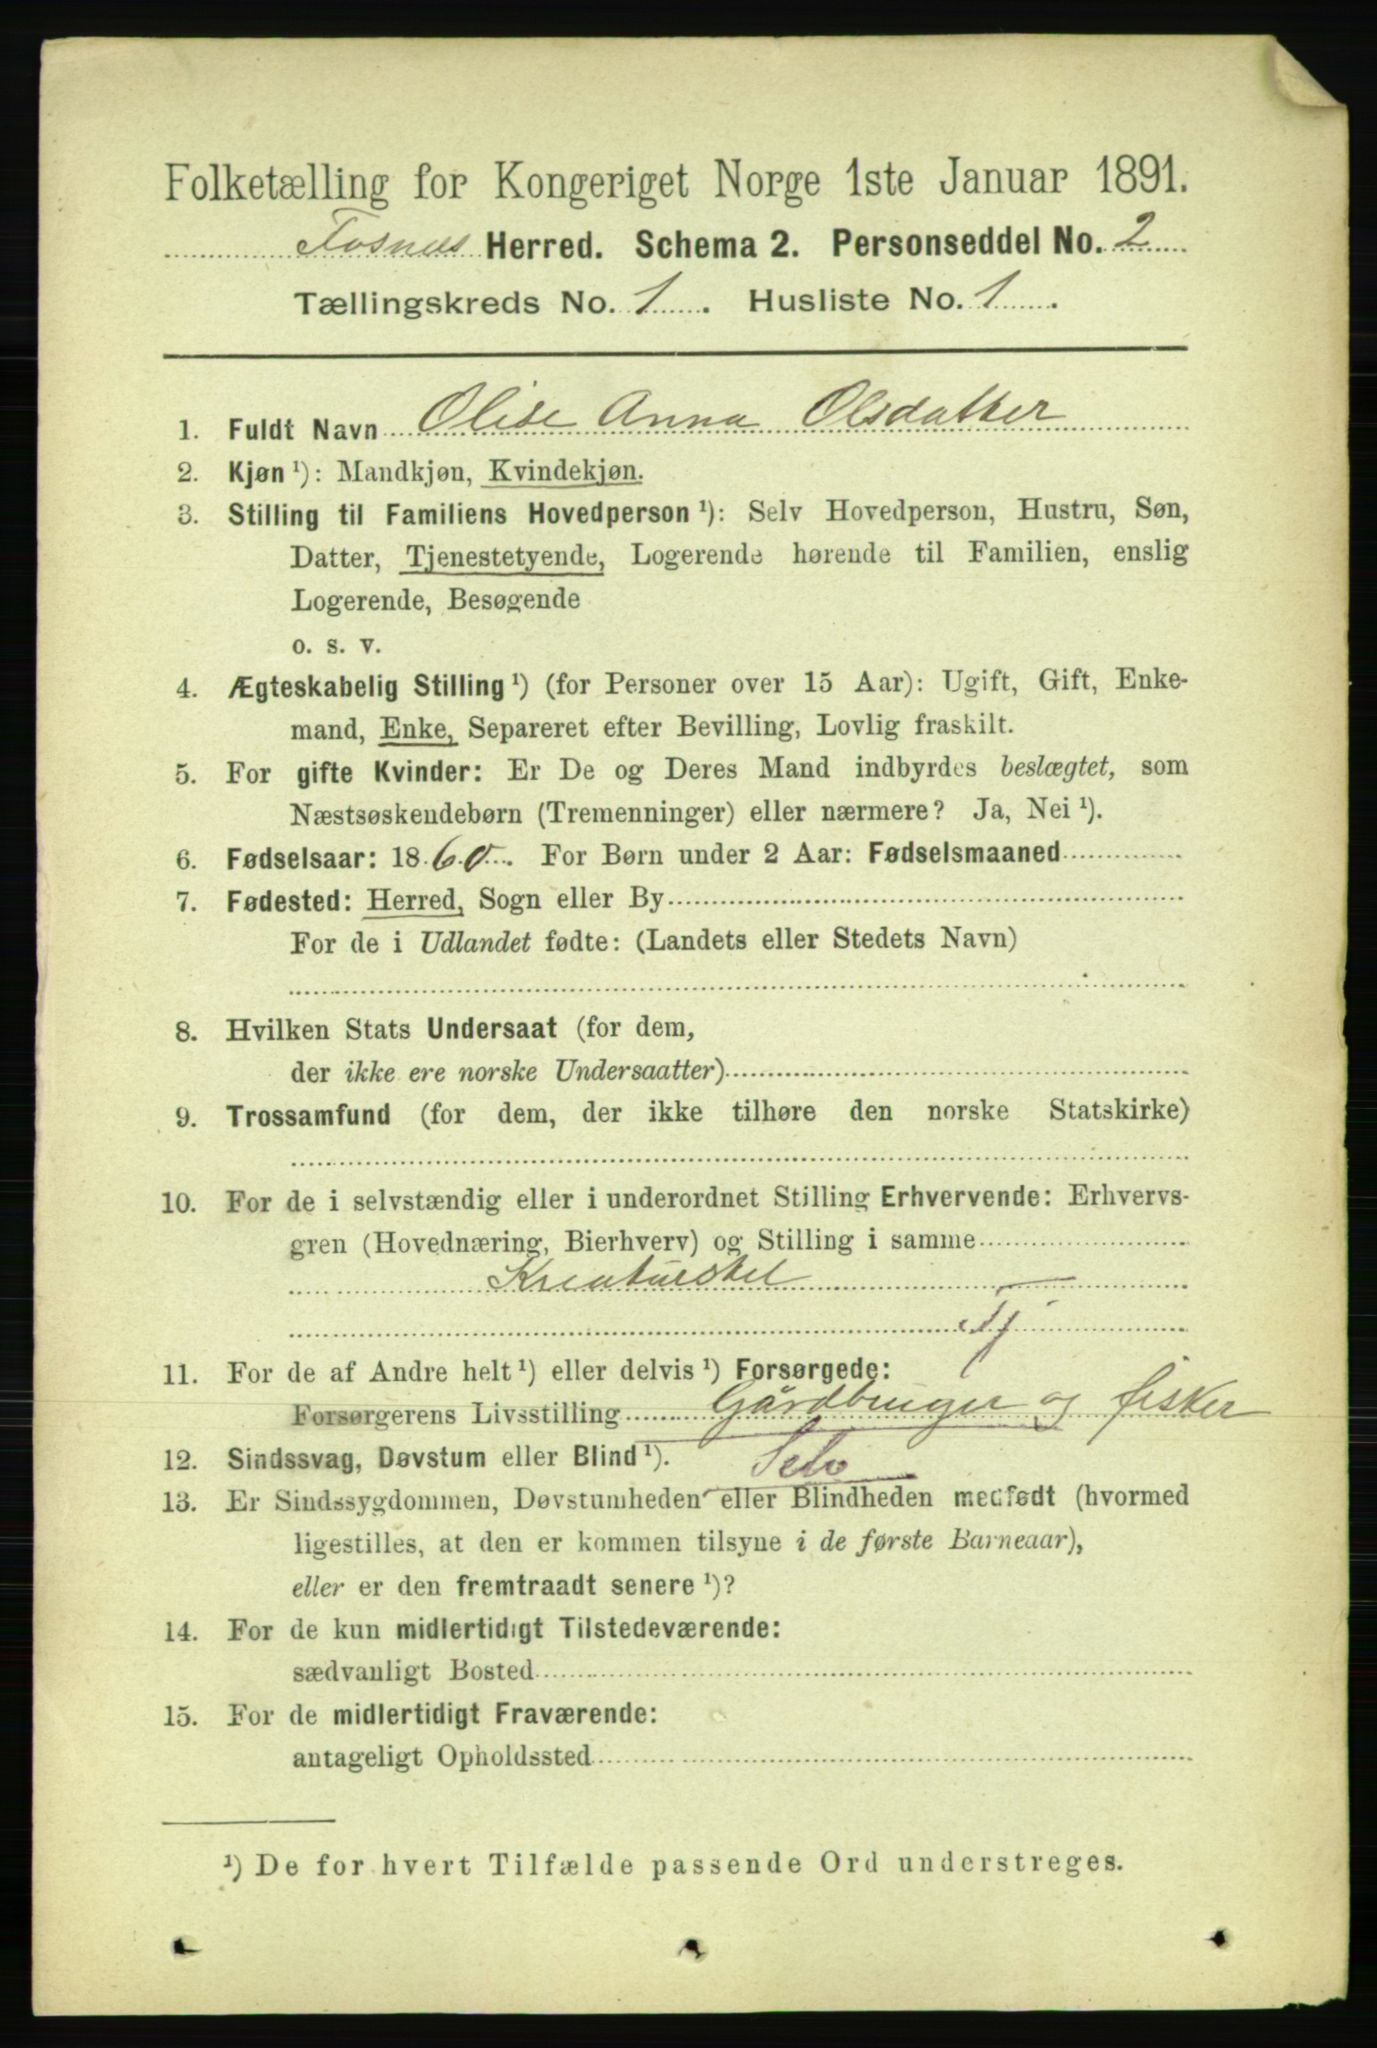 Folketælling for Kongeriget Norge 1ste Januar 1891.
Fosnæs Herred. Schema 2. Personseddel No. 2
Tællingskreds No. 1. Husliste No. 1.
1. Fuldt Navn Olise Anna Olsdatter
2. Kjøn ¹): Mandkjøn, Kvindekjøn.
3. Stilling til Familiens Hovedperson ¹): Selv Hovedperson, Hustru, Søn,
Datter, Tjenestetyende, Logerende hørende til Familien, enslig
Logerende, Besøgende
o. s. v.
4. Ægteskabelig Stilling ¹) (for Personer over 15 Aar): Ugift, Gift, Enke-
mand, Enke, Separeret efter Bevilling, Lovlig fraskilt.
5. For gifte Kvinder: Er De og Deres Mand indbyrdes beslægtet, som
Næstsøskendebørn (Tremenninger) eller nærmere? Ja, Nei ¹).
6. Fødselsaar: 1860. For Børn under 2 Aar: Fødselsmaaned
7. Fødested: Herred, Sogn eller By
For de i Udlandet fødte: (Landets eller Stedets Navn)
8. Hvilken Stats Undersaat (for dem,
der ikke ere norske Undersaatter)
9. Trossamfund (for dem, der ikke tilhøre den norske Statskirke)
10. For de i selvstændig eller i underordnet Stilling Erhvervende: Erhvervs-
gren (Hovednæring, Bierhverv) og Stilling i samme
Kreaturstel
Tj
11. For de af Andre helt ¹) eller delvis ¹) Forsørgede:
Forsørgerens Livsstilling Gårdbruger og fisker
12. Sindssvag, Døvstum eller Blind ¹). Selv
13. Er Sindssygdommen, Døvstumheden eller Blindheden medfødt (hvormed
ligestilles, at den er kommen tilsyne i de første Barneaar),
eller er den fremtraadt senere ¹)?
14. For de kun midlertidigt Tilstedeværende:
sædvanligt Bosted
15. For de midlertidigt Fraværende:
antageligt Opholdssted
¹) De for hvert Tilfælde passende Ord understreges.